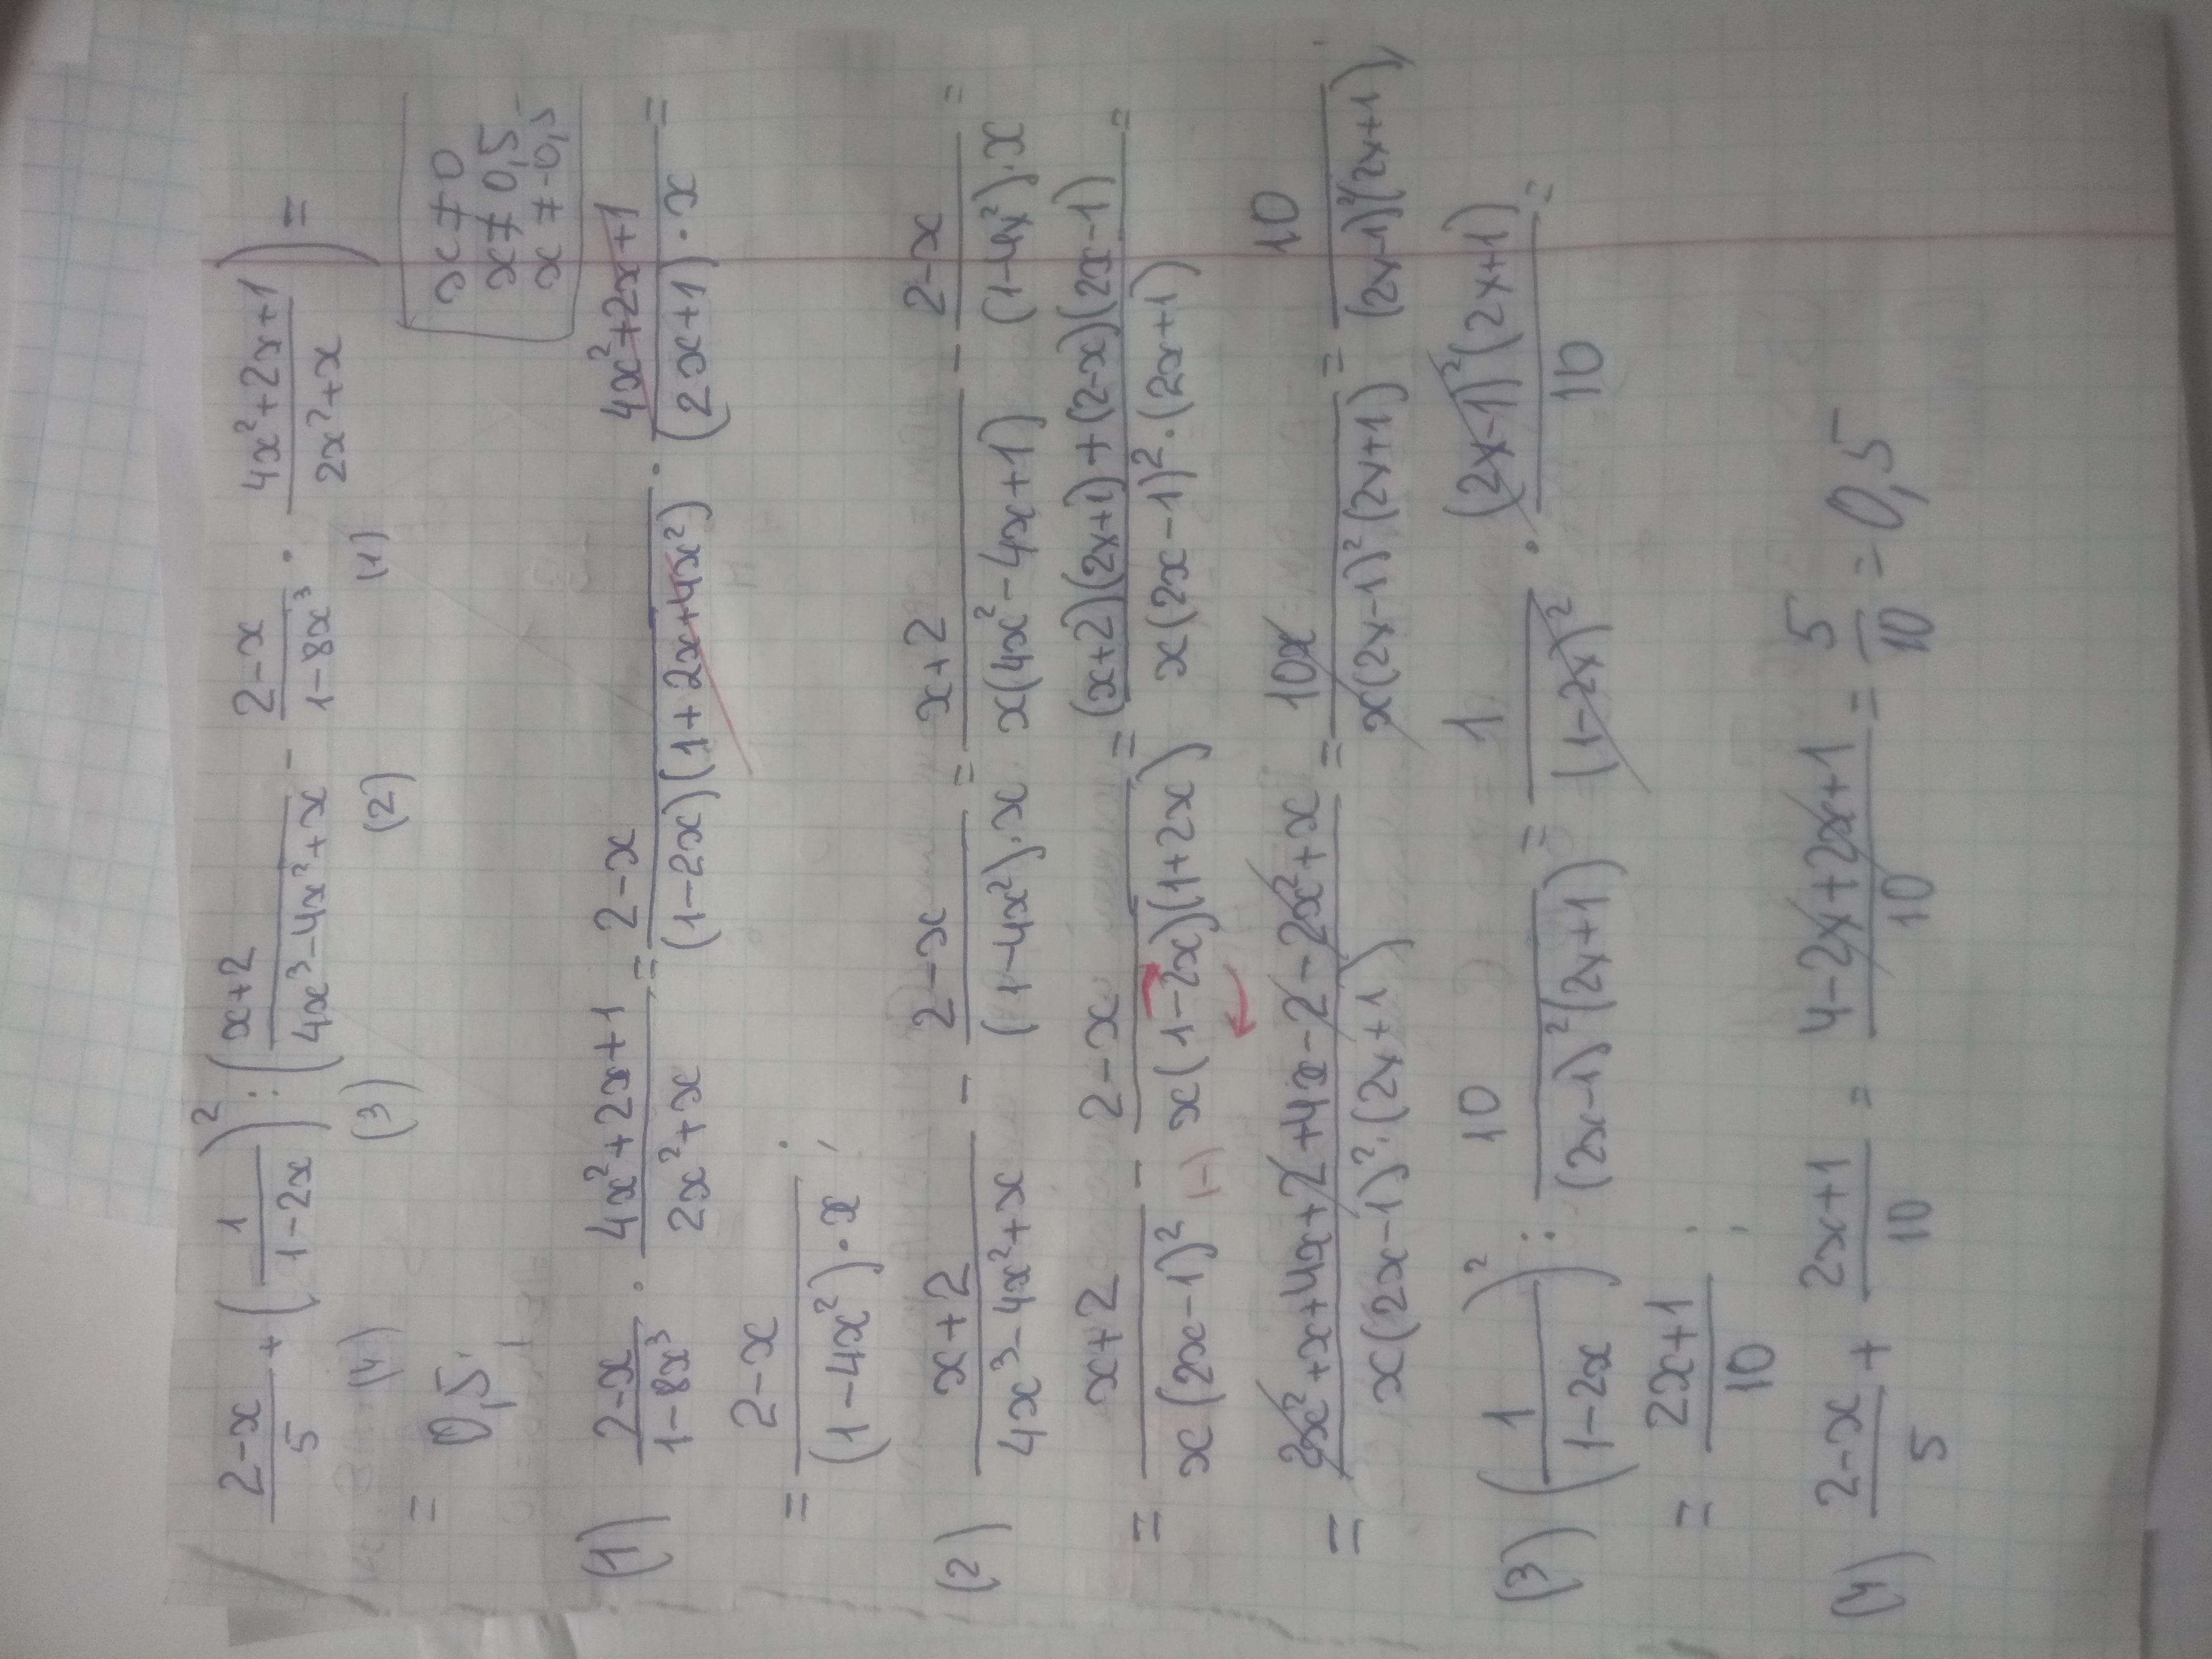 (2-x)/5 + (1/(1-2x))² : ((x+2)/(4x³-4x²+x) - (2-x)/(1-8x³) · (4x²+2x+1)/(2x²+x)) =
(4) (3) (2) (1)
= 0,5.
x ≠ 0
x ≠ 0,5
x ≠ -0,5
(1) (2-x)/(1-8x³) · (4x²+2x+1)/(2x²+x) = (2-x)/((1-2x)(1+2x+4x²)) · (4x²+2x+1)/((2x+1)·x) =
= (2-x)/((1-4x²)·x);
(2) (x+2)/(4x³-4x²+x) - (2-x)/((1-4x²)·x) = (x+2)/(x(4x²-4x+1)) - (2-x)/((1-4x²)·x) =
= (x+2)/(x(2x-1)²) - (2-x)/(x(1-2x)(1+2x)) = ((x+2)(2x+1)+(2-x)(2x-1))/(x(2x-1)²·(2x+1)) =
(-)
= (2x²+x+4x+2+4x-2-2x²+x)/(x(2x-1)²·(2x+1)) = 10x/(x(2x-1)²(2x+1)) = 10/((2x-1)²(2x+1));
(3) (1/(1-2x))² : 10/((2x-1)²(2x+1)) = 1/(1-2x)² · ((2x-1)²(2x+1))/10 =
= (2x+1)/10;
(4) (2-x)/5 + (2x+1)/10 = (4-2x+2x+1)/10 = 5/10 = 0,5